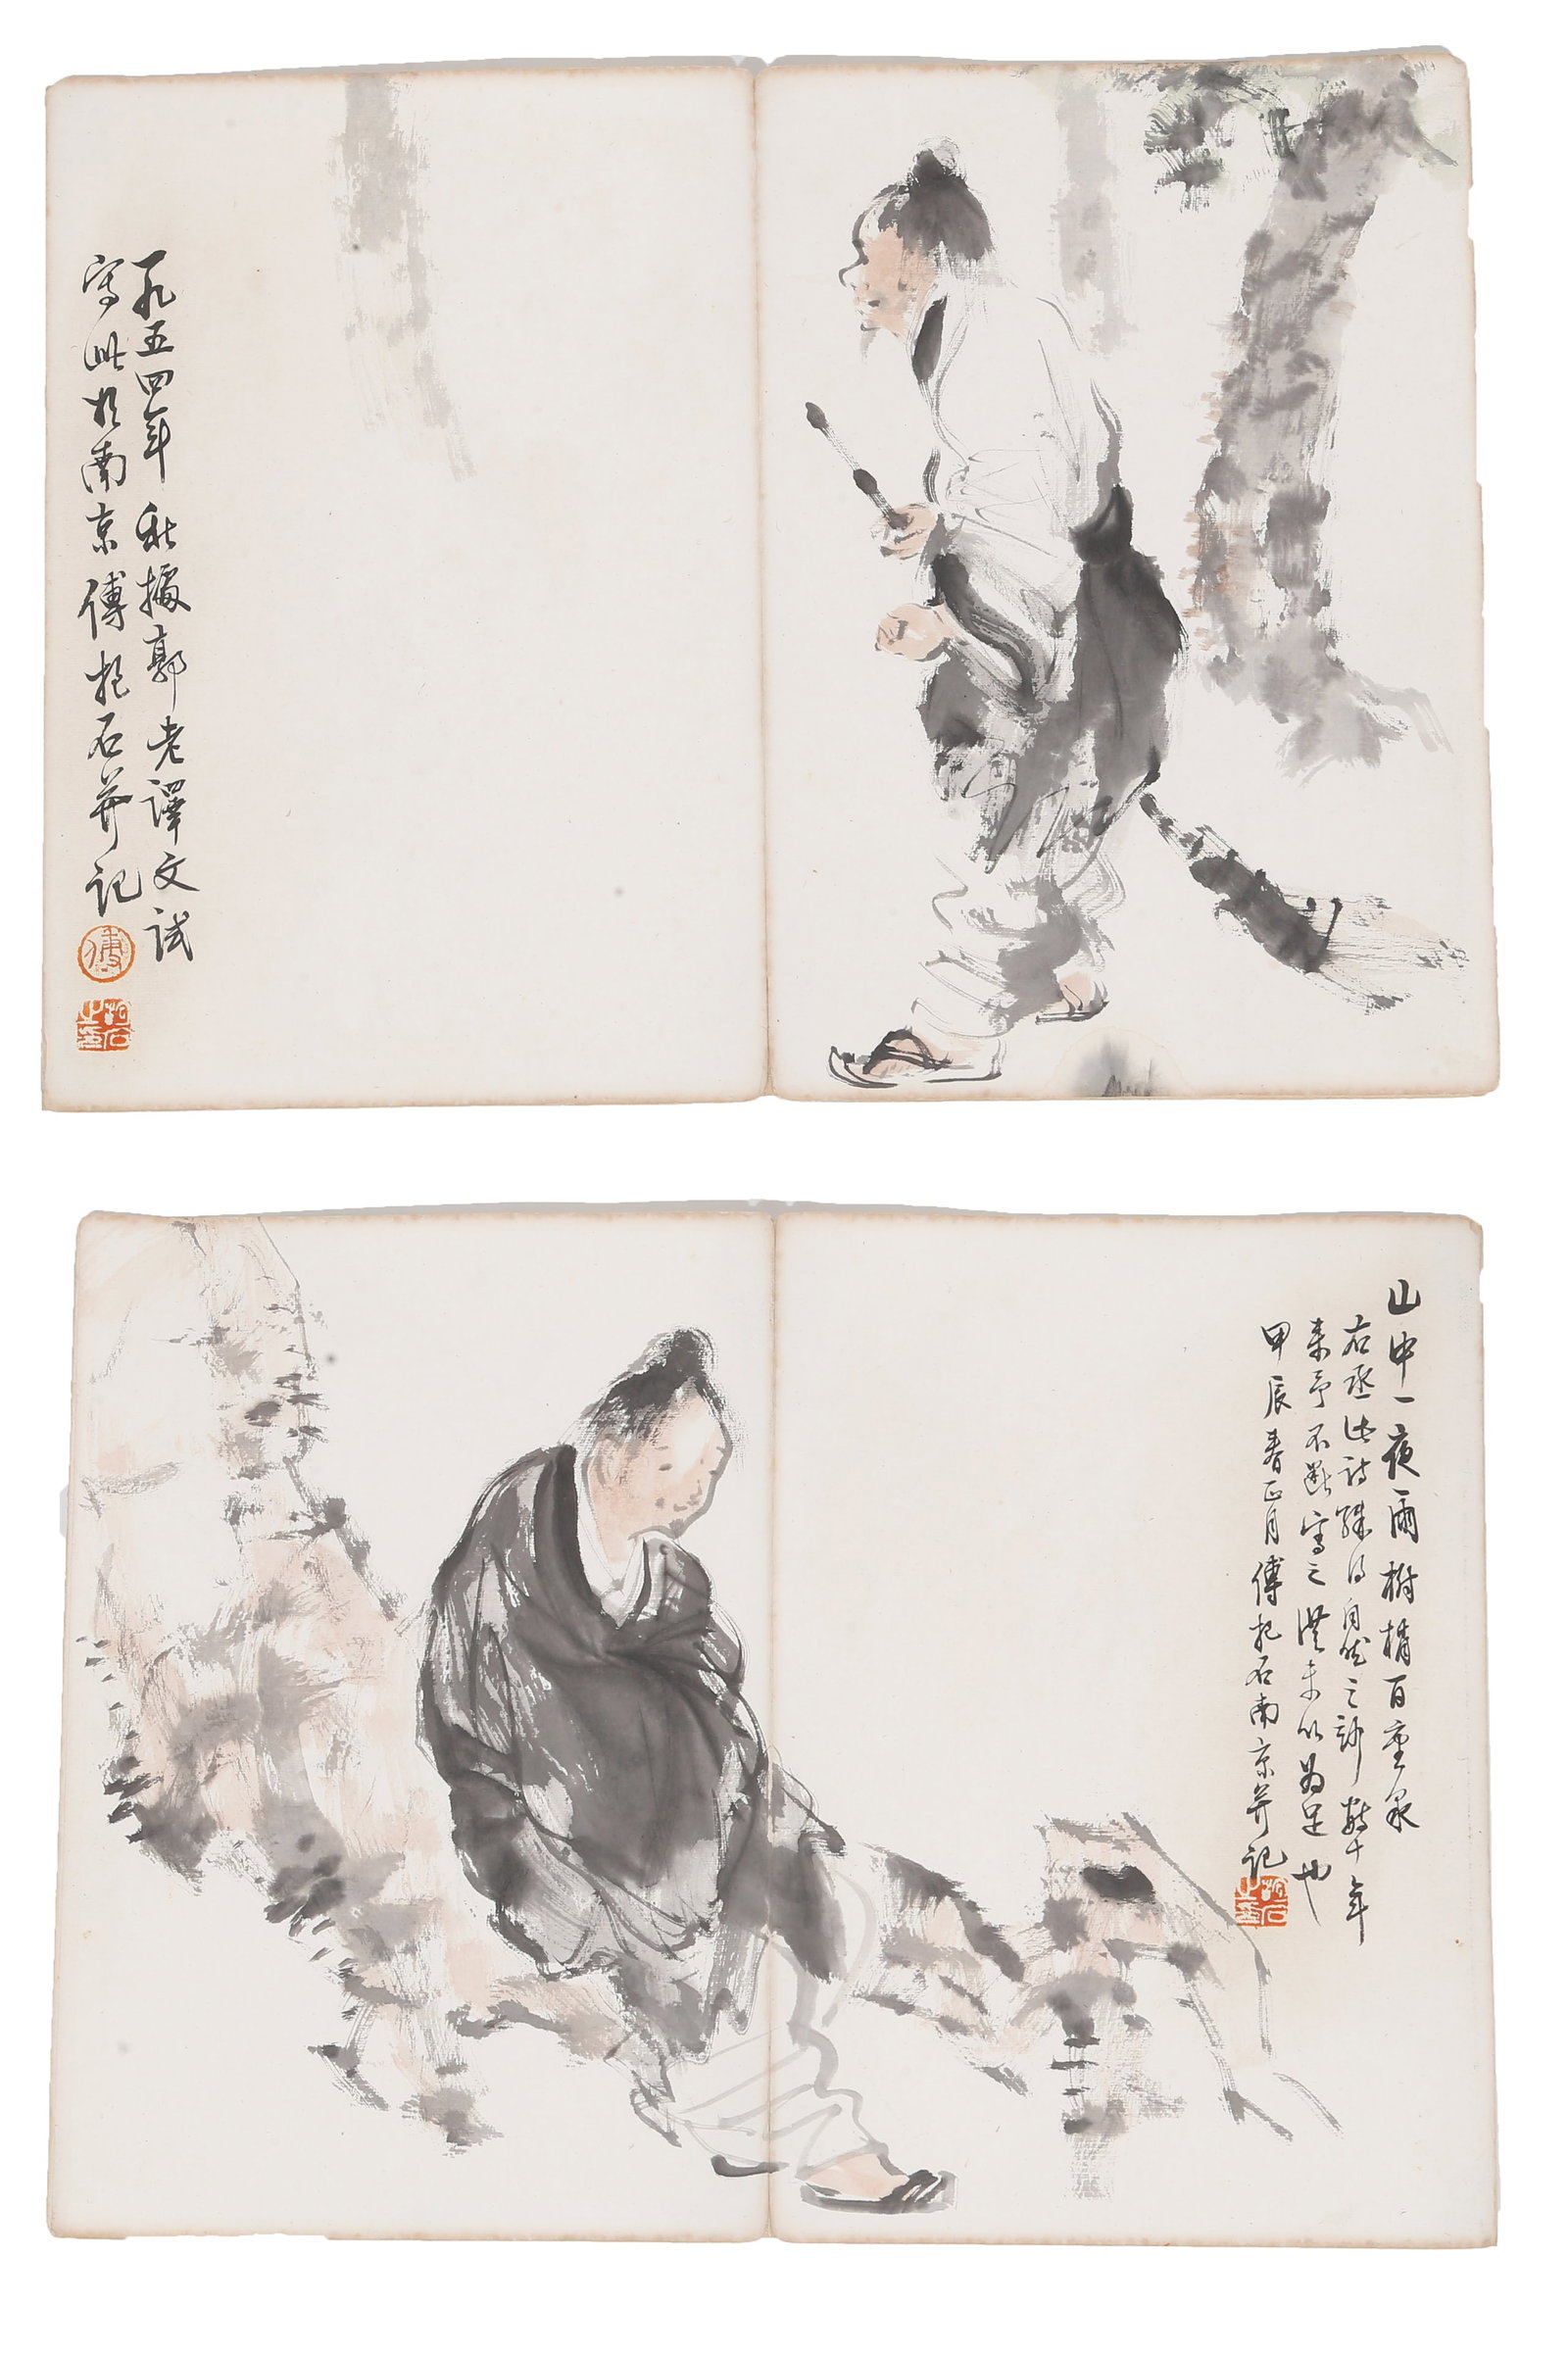 一九五四年秋据郭老译文試
寫此於南京傅抱石并記
傅
抱石之印
山中一夜雨樹梢百重泉
右丞此詩殊得自然之妙數十年
来予不斷寫之漢未以為足也
甲辰春正月傅抱石南京并記
抱石之印